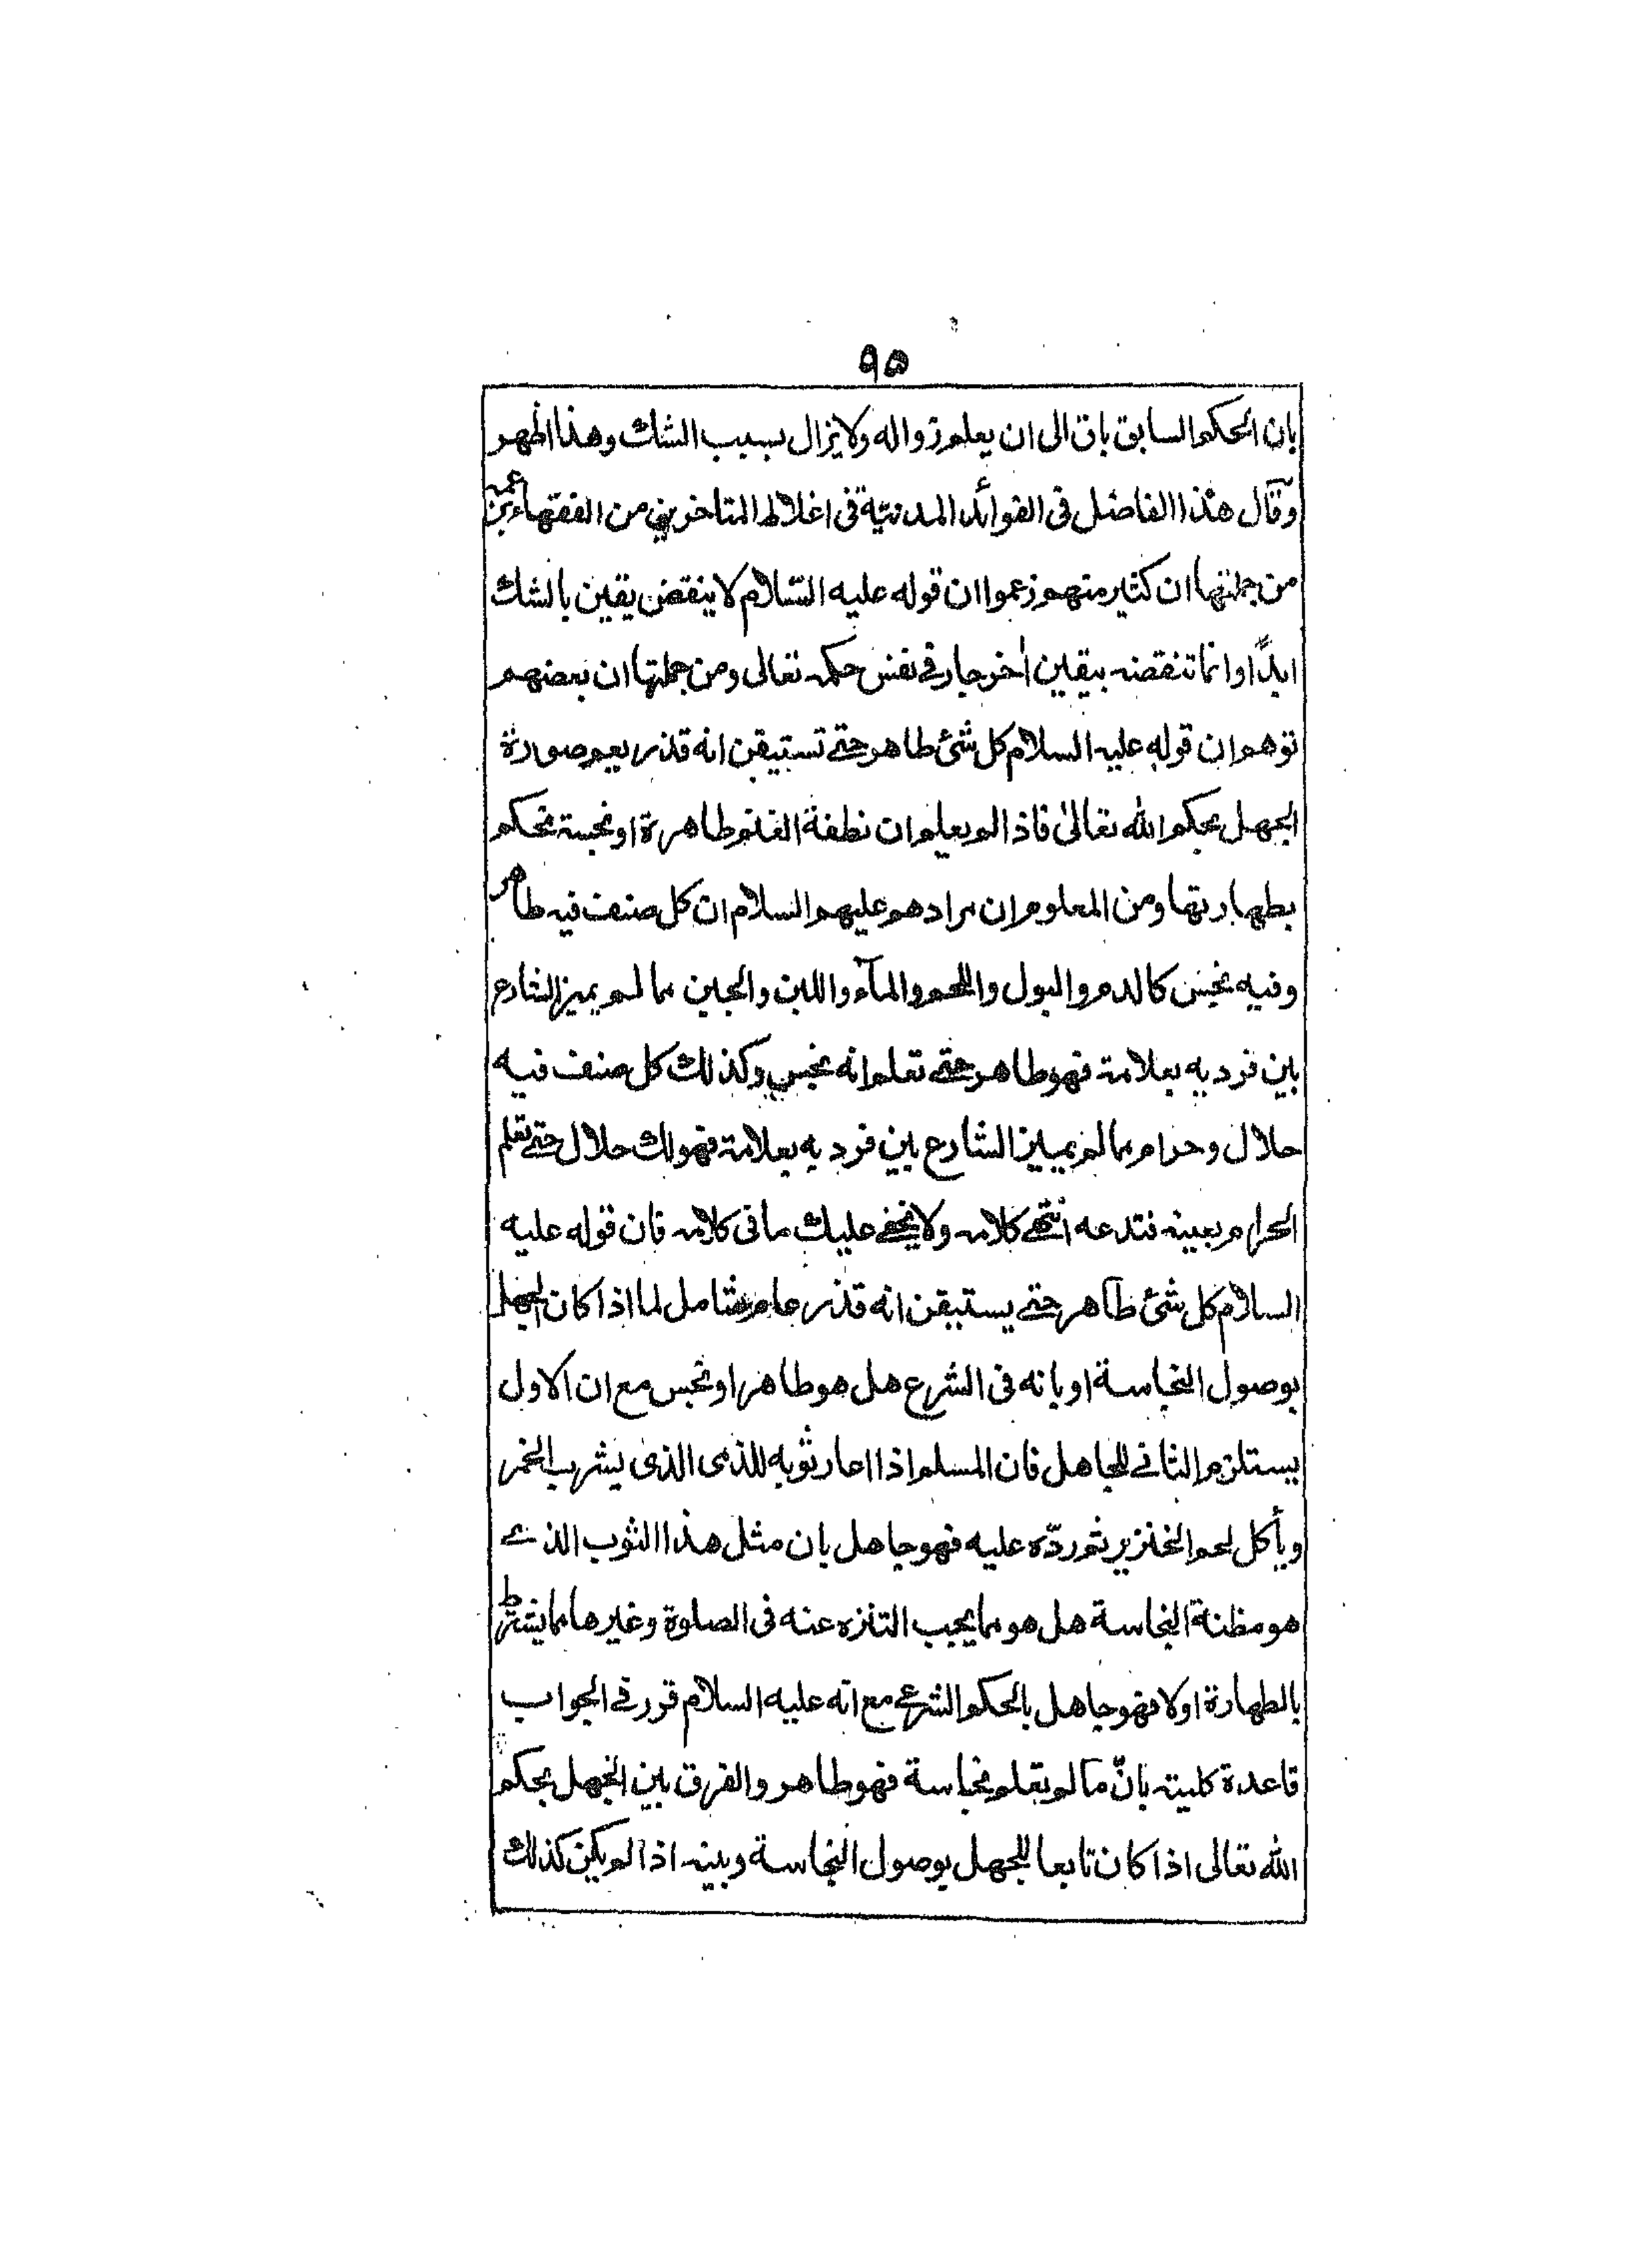 ٩٥
بان الحكم السابق باق الى ان يعلم زواله ولا يزال بسبب الشك وهذا اظهر
وقال هذا الفاضل فى الفوائد المدنية فى اغلاط المتاخرين من الفقهاء بزعمه
من جملتها ان كثير منهم زعموا ان قوله عليه السّلام لا ينقض يقين بالشك
ابدًا وانما تنقضه بيقين اٰخر جار فى نفس حكمه تعالى ومن جملتها ان بعضهم
توهم ان قوله عليه السلام كل شئ طاهر حتى تستيقن انه قذر يعم صورة
الجهل بحكم الله تعالىٰ فاذا لم يعلم ان نطفة الغنم طاهرة او نجسة نحكم
بطهارتها ومن المعلوم ان مرادهم عليهم السلام ان كل صنف فيه طاهر
وفيه نجس كالدم والبول واللحم والمآء واللبن والجبن مما لم يميز الشارع
بين فرديه بعلامة فهو طاهر حتى تعلم انه نجس وكذلك كل صنف فيه
حلال وحرام مما لم يميز الشارع بين فرديه بعلامة فهو لك حلال حتى تعلم
الحرام بعينه فتدعه انتهى كلامه ولا يخفى عليك ما فى كلامه فان قوله عليه
السلام كل شئ طاهر حتى يستيقن انه قذر عام شامل لما اذا كان الجهل
بوصول النجاسة او بانه فى الشرع هل هو طاهر او نجس مع ان الاول
يستلزم الثانى للجاهل فان المسلم اذا اعار ثوبه للذمى الذى يشرب الخمر
ويأكل لحم الخنزير ثم ردّه عليه فهو جاهل بان مثل هذا الثوب الذى
هو مظنة النجاسة هل هو مما يجب التنزه عنه فى الصلوة وغيرها مما يشترط
بالطهارة اولا فهو جاهل بالحكم الشرعى مع انه عليه السلام قرر فى الجواب
قاعدة كلية بانّ ما لم يعلم نجاسة فهو طاهر والفرق بين الجهل بحكم
الله تعالى اذا كان تابعا للجهل بوصول النجاسة وبينه اذا لم يكن كذلك